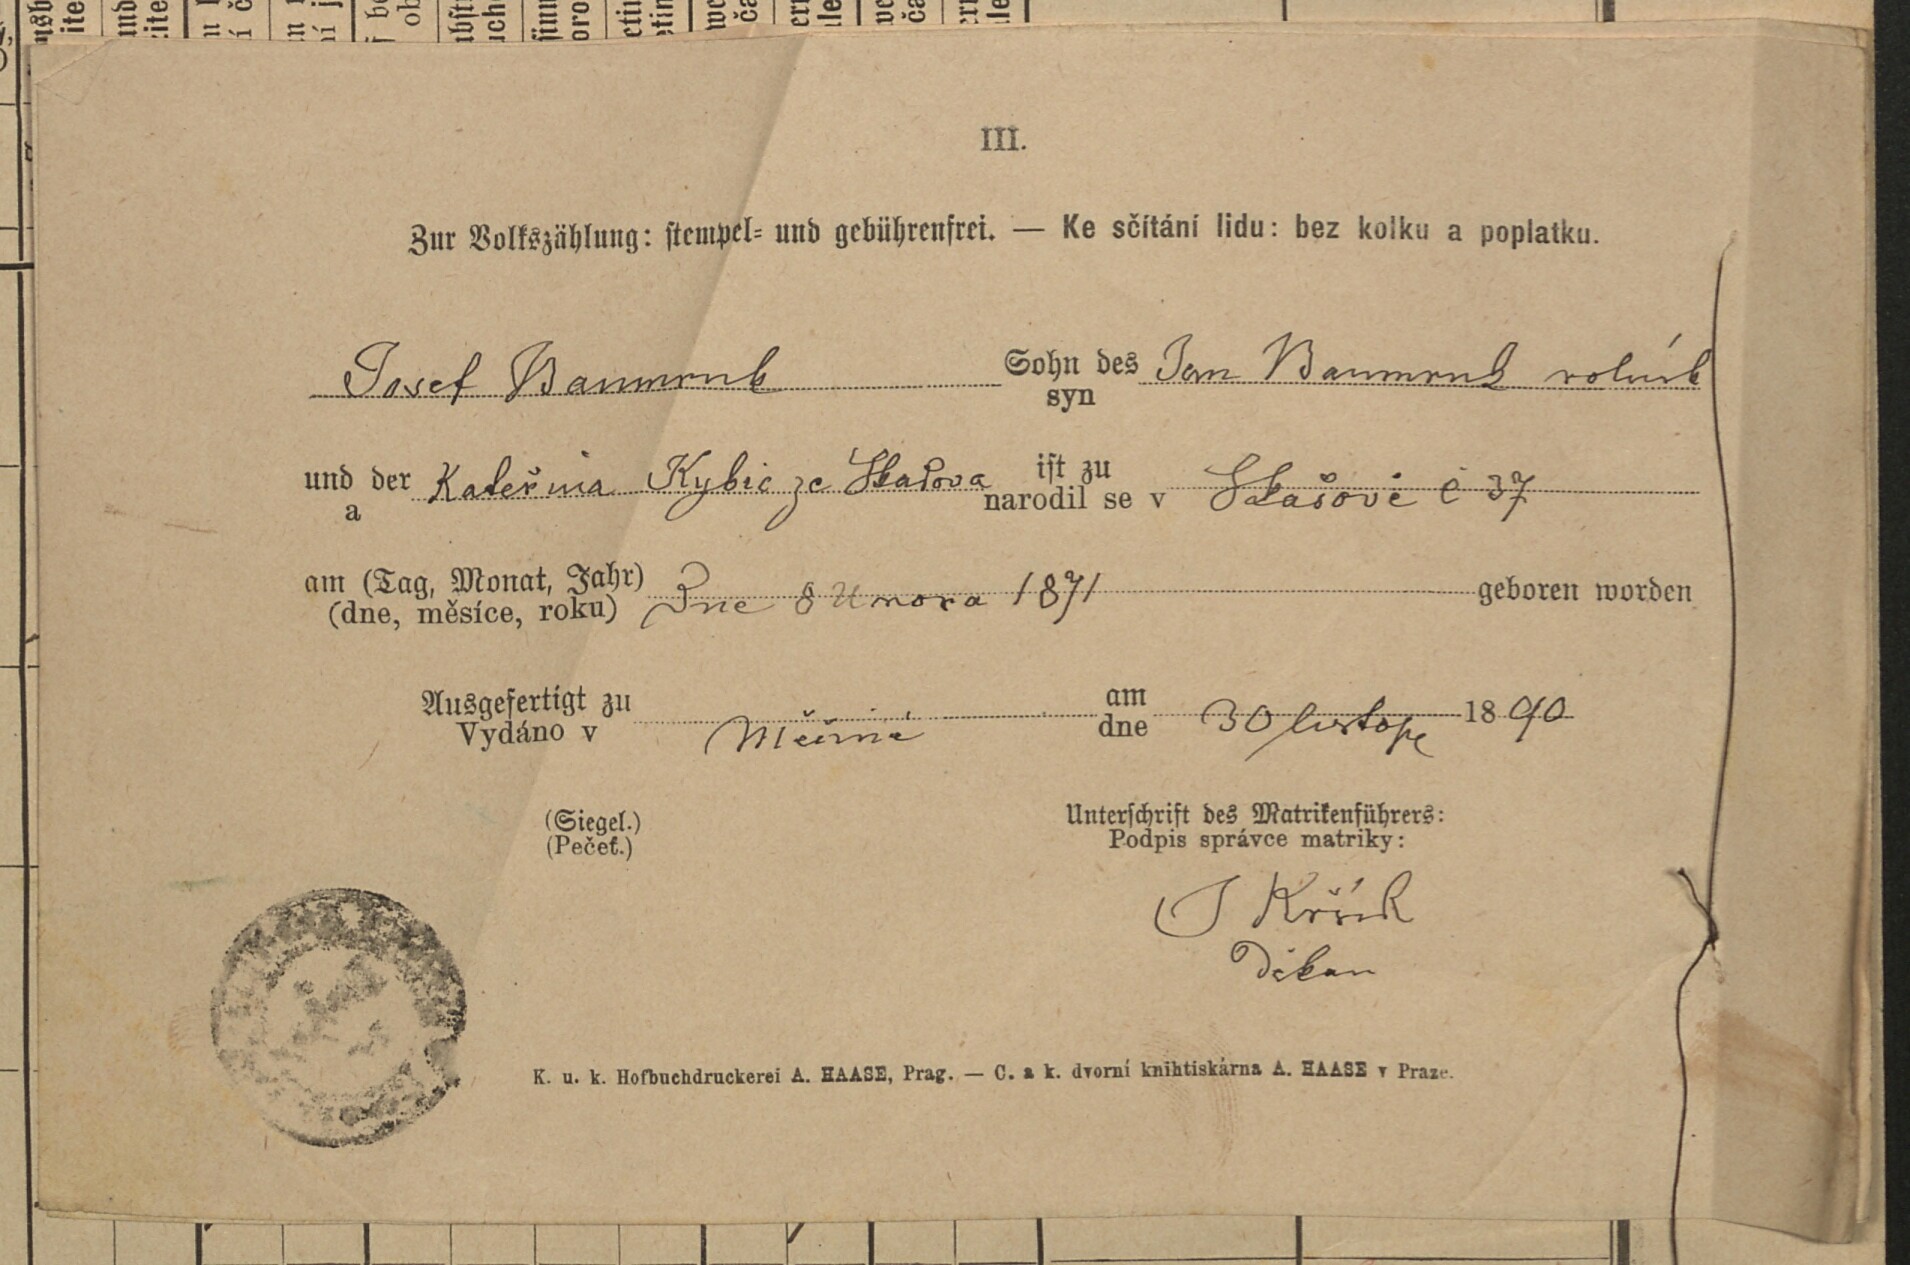 III.
Zur Volkszählung: stempel- und gebührenfrei. — Ke sčítání lidu: bez kolku a poplatku.
Josef Baumruk Sohn des Jan Baumruk rolník
syn
und der Kateřina Kybic ze Skašova ist zu
a narodil se v Skašově č 37
am (Tag, Monat, Jahr) Dne 8 Unora 1871 geboren worden
(dne, měsíce, roku)
Ausgefertigt zu am
Vydáno v Měčíně dne 30 listop 1890
(Siegel.) Unterschrift des Matrikenführers:
(Pečeť.) Podpis správce matriky:
J Křík
Děkan
K. u. k. Hofbuchdruckerei A. HAASE, Prag. — C. a k. dvorní knihtiskárna A. HAASE v Praze.